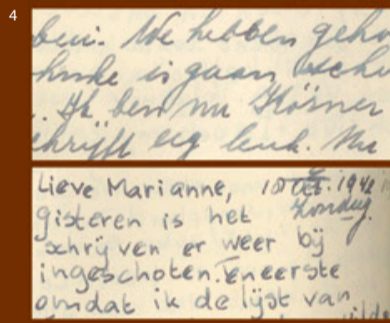 4
ben. We hebben geho
is gaan sch
. Ik ben nu Körner
chrijft erg leuk. Nu
Lieve Marianne, 18 Oct. 1942
Zondag.
gisteren is het
schrijven er weer bij
ingeschoten. Teneerste
omdat ik de lijst van